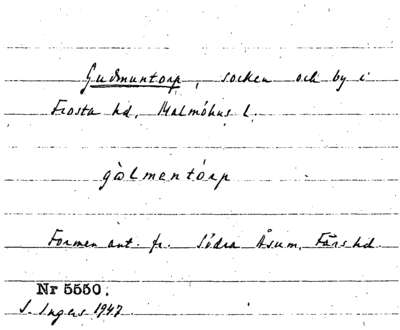 Gudmuntorp, socken och by i
Frosta hd, Malmöhus l.
gòlmentórp
Formen ant. fr. Södra Åsum, Färs hd.
Nr 5550.
I. Ingers 1947